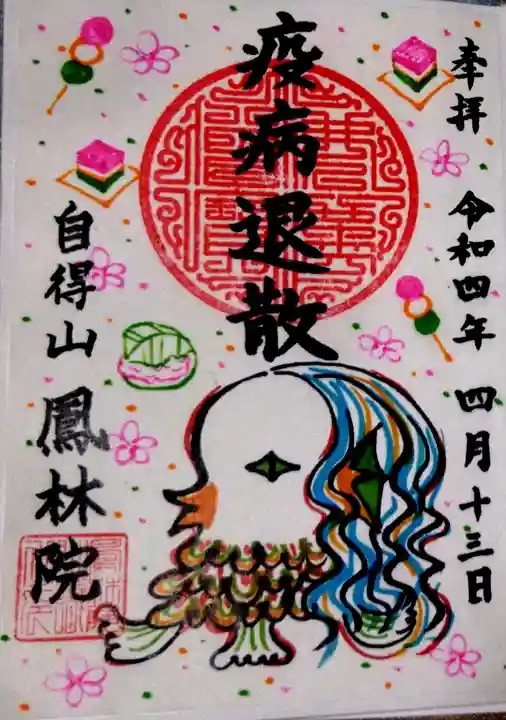 奉拝
令和四年 四月十三日
疫病退散
自得山 鳳林院